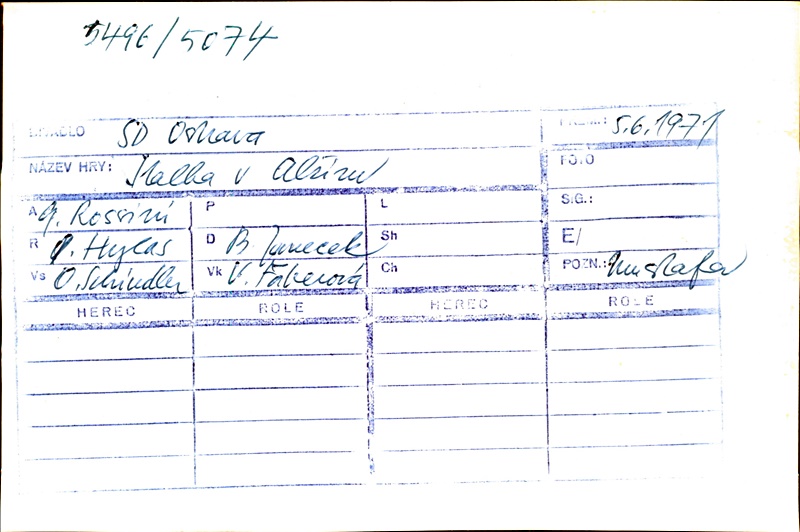 5496/5074
DIVADLO SD Ostrava PREM.: 5.6.1971
NÁZEV HRY: Italka v Alžíru FOTO
A G. Rossini P L SIG.:
R I. Hylas D B. Janeček Sh E/
Vs O. Schindler Vk V. Fáberová Ch POZN.: Mustafa
HEREC ROLE HEREC ROLE